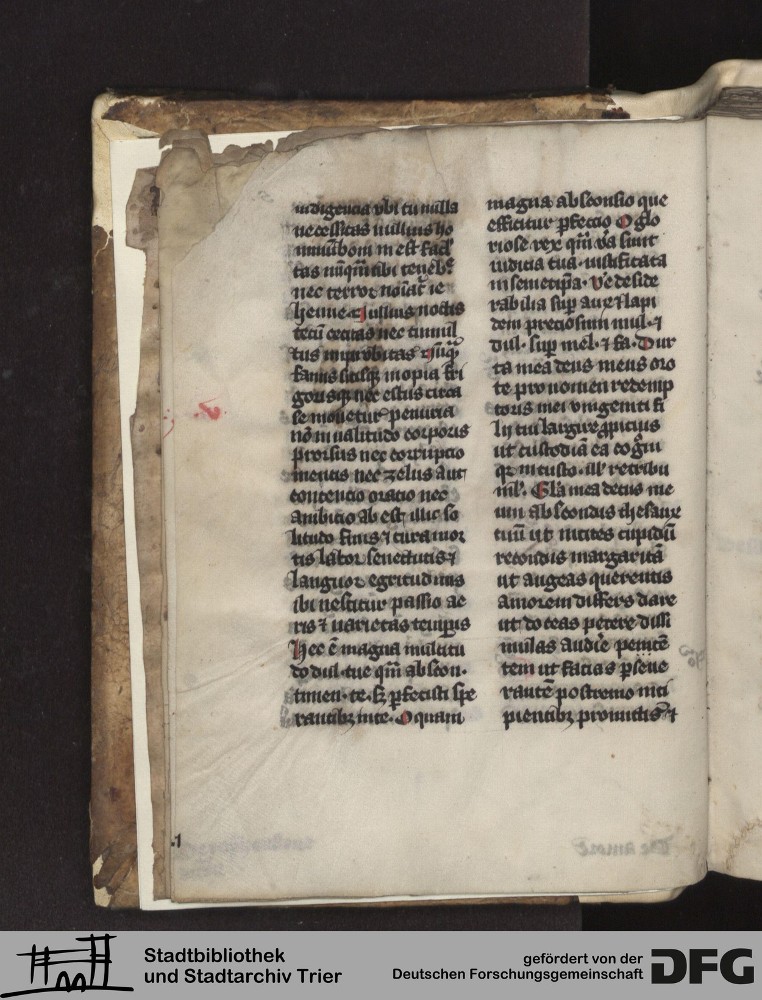 indigencia vbi tu nulla
necessitas nullius ho
minũ bom̃ in est facl̃
tas nũq̃m tibi teneb̾ꝰ
nec terror nouat᷑ ie
henne ⁊ illius noctis
tecũ cecitas nec tumul
tus improbitas
famis sitisq; inopia fri
gorisq; nec estus circa
se mouetur penuria
nõ in ualitudo corporis
prorsus nec corrupcio
mentis nec zelus aut
contencio oratio nec
ambitio ab est illic so
litudo finis ⁊ cura mor
tis labor senectutis ⁊
languor egritudinis
ibi nescitur passio ae
ris ⁊ uarietas temp̲is
Hec ẽ magna multitu
do dul·tue q̃m abscon·
timen·te·s; p̲fecisti spe
rantib; in te· O quam
magna absconsio que
efficitur p̲fectio O glo
riose rex q̃m v̾a sunt
iudicia tua·iustificata
in semetip̃a· Ve deside
rabilia sup̲ aur̃ ⁊ lapi
dem preciosum mul·⁊
dul·sup̲ mel·⁊ fa· Dur
ta mea deus meus oro
te pro nomen redemp
toris mei vnigeniti fi
lii tui largire p̲spicius
ut custodiã ea cogñi
q̃ in custo·ill᷑ retribu
ml᷑· Gl̃a mea decus me
um abscondis thesaur̃
tuũ ut incites cupidũ
recondis margaritã
ut augeas querentis
amorem differs dare
ut doceas petere dissi
mulas audir̃e penitẽ
tem ut facias p̲seue
rantẽ postremo inci
pientib; promittis ⁊
.1
Stadtbibliothek
und Stadtarchiv Trier
gefördert von der
Deutschen Forschungsgemeinschaft
DFG